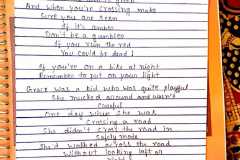 And when you're crossing make
Sure you are seen
If it's amber
Don't be a gambler
If you run the red
You could be dead!
If you're on a bike at night
Remember to put on your light
Grace was a kid who was quite playful
She mucked around and wasn't
Careful
One day when she was
Crossing a road
She didn't cross the road in
Safety mode
She walked across the road
Without looking left or